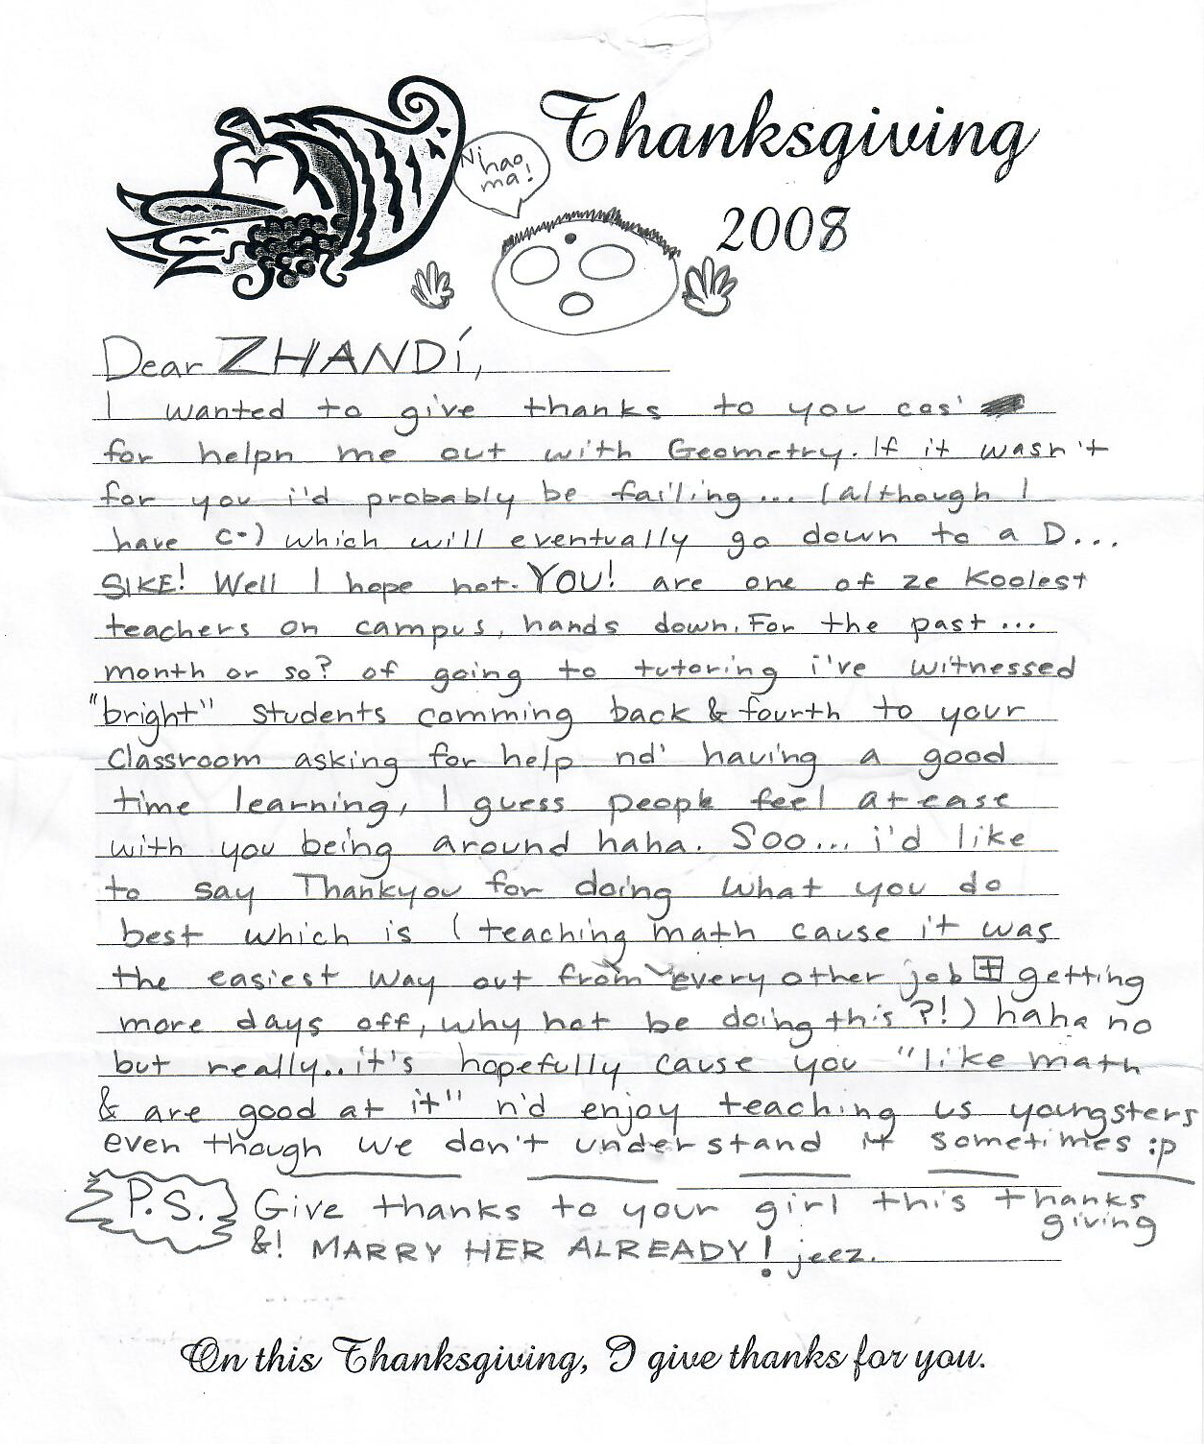 Thanksgiving
2008
Ni hao
ma!
Dear ZHANDÍ,
I wanted to give thanks to you cos'
for helpn me out with Geometry. If it wasn't
for you i'd probably be failing... (although I
have C-) which will eventually go down to a D...
SIKE! Well I hope not. YOU! are one of ze koolest
teachers on campus, hands down. For the past...
month or so? of going to tutoring i've witnessed
"bright" students comming back & fourth to your
classroom asking for help nd' having a good
time learning, I guess people feel at ease
with you being around haha. Soo... i'd like
to say Thankyou for doing what you do
best which is (teaching math cause it was
the easiest way out from every other job + getting
more days off, why not be doing this?!) haha no
but really.. it's hopefully cause you "like math
& are good at it" n'd enjoy teaching us youngsters
even though we don't understand it sometimes :p
P.S. Give thanks to your girl this thanks
giving
&! MARRY HER ALREADY! jeez.
On this Thanksgiving, I give thanks for you.